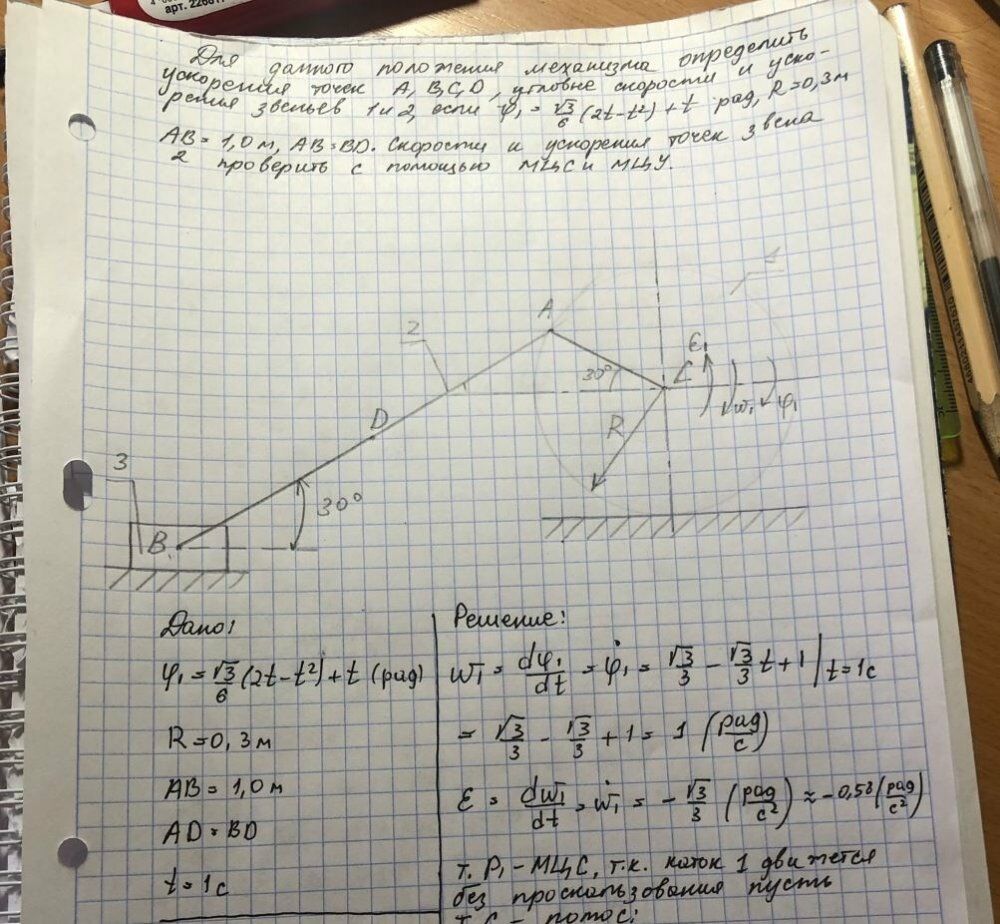 арт. 2268
Для данного положения механизма определить
ускорения точек A, B, C, D, угловые скорости и уско-
рения звеньев 1 и 2, если φ₁ = √3/6 (2t-t²) + t рад, R=0,3 м
AB = 1,0 м, AB = BD. Скорости и ускорения точек звена
2 проверить с помощью МЦС и МЦУ.
1
A
2
ε₁
30°
C
ω₁ φ₁
D
R
3
30°
B
Дано:
φ₁ = √3/6 (2t-t²) + t (рад)
R = 0,3 м
AB = 1,0 м
AD = BD
t = 1 с
Решение:
ω₁ = dφ₁/dt = φ̇₁ = √3/3 - √3/3 t + 1 | t = 1 с
= √3/3 - √3/3 + 1 = 1 (рад/с)
ε = dω₁/dt = ω̇₁ = - √3/3 (рад/с²) ≈ -0,58 (рад/с²)
т. P₁ - МЦС, т.к. каток 1 движется
без проскальзования пусть
т. C - полюс: